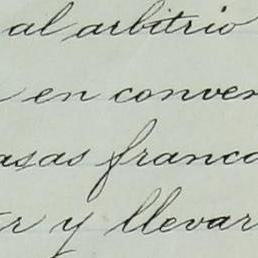 al arbitrio
en conven
asas franca
er y llevar